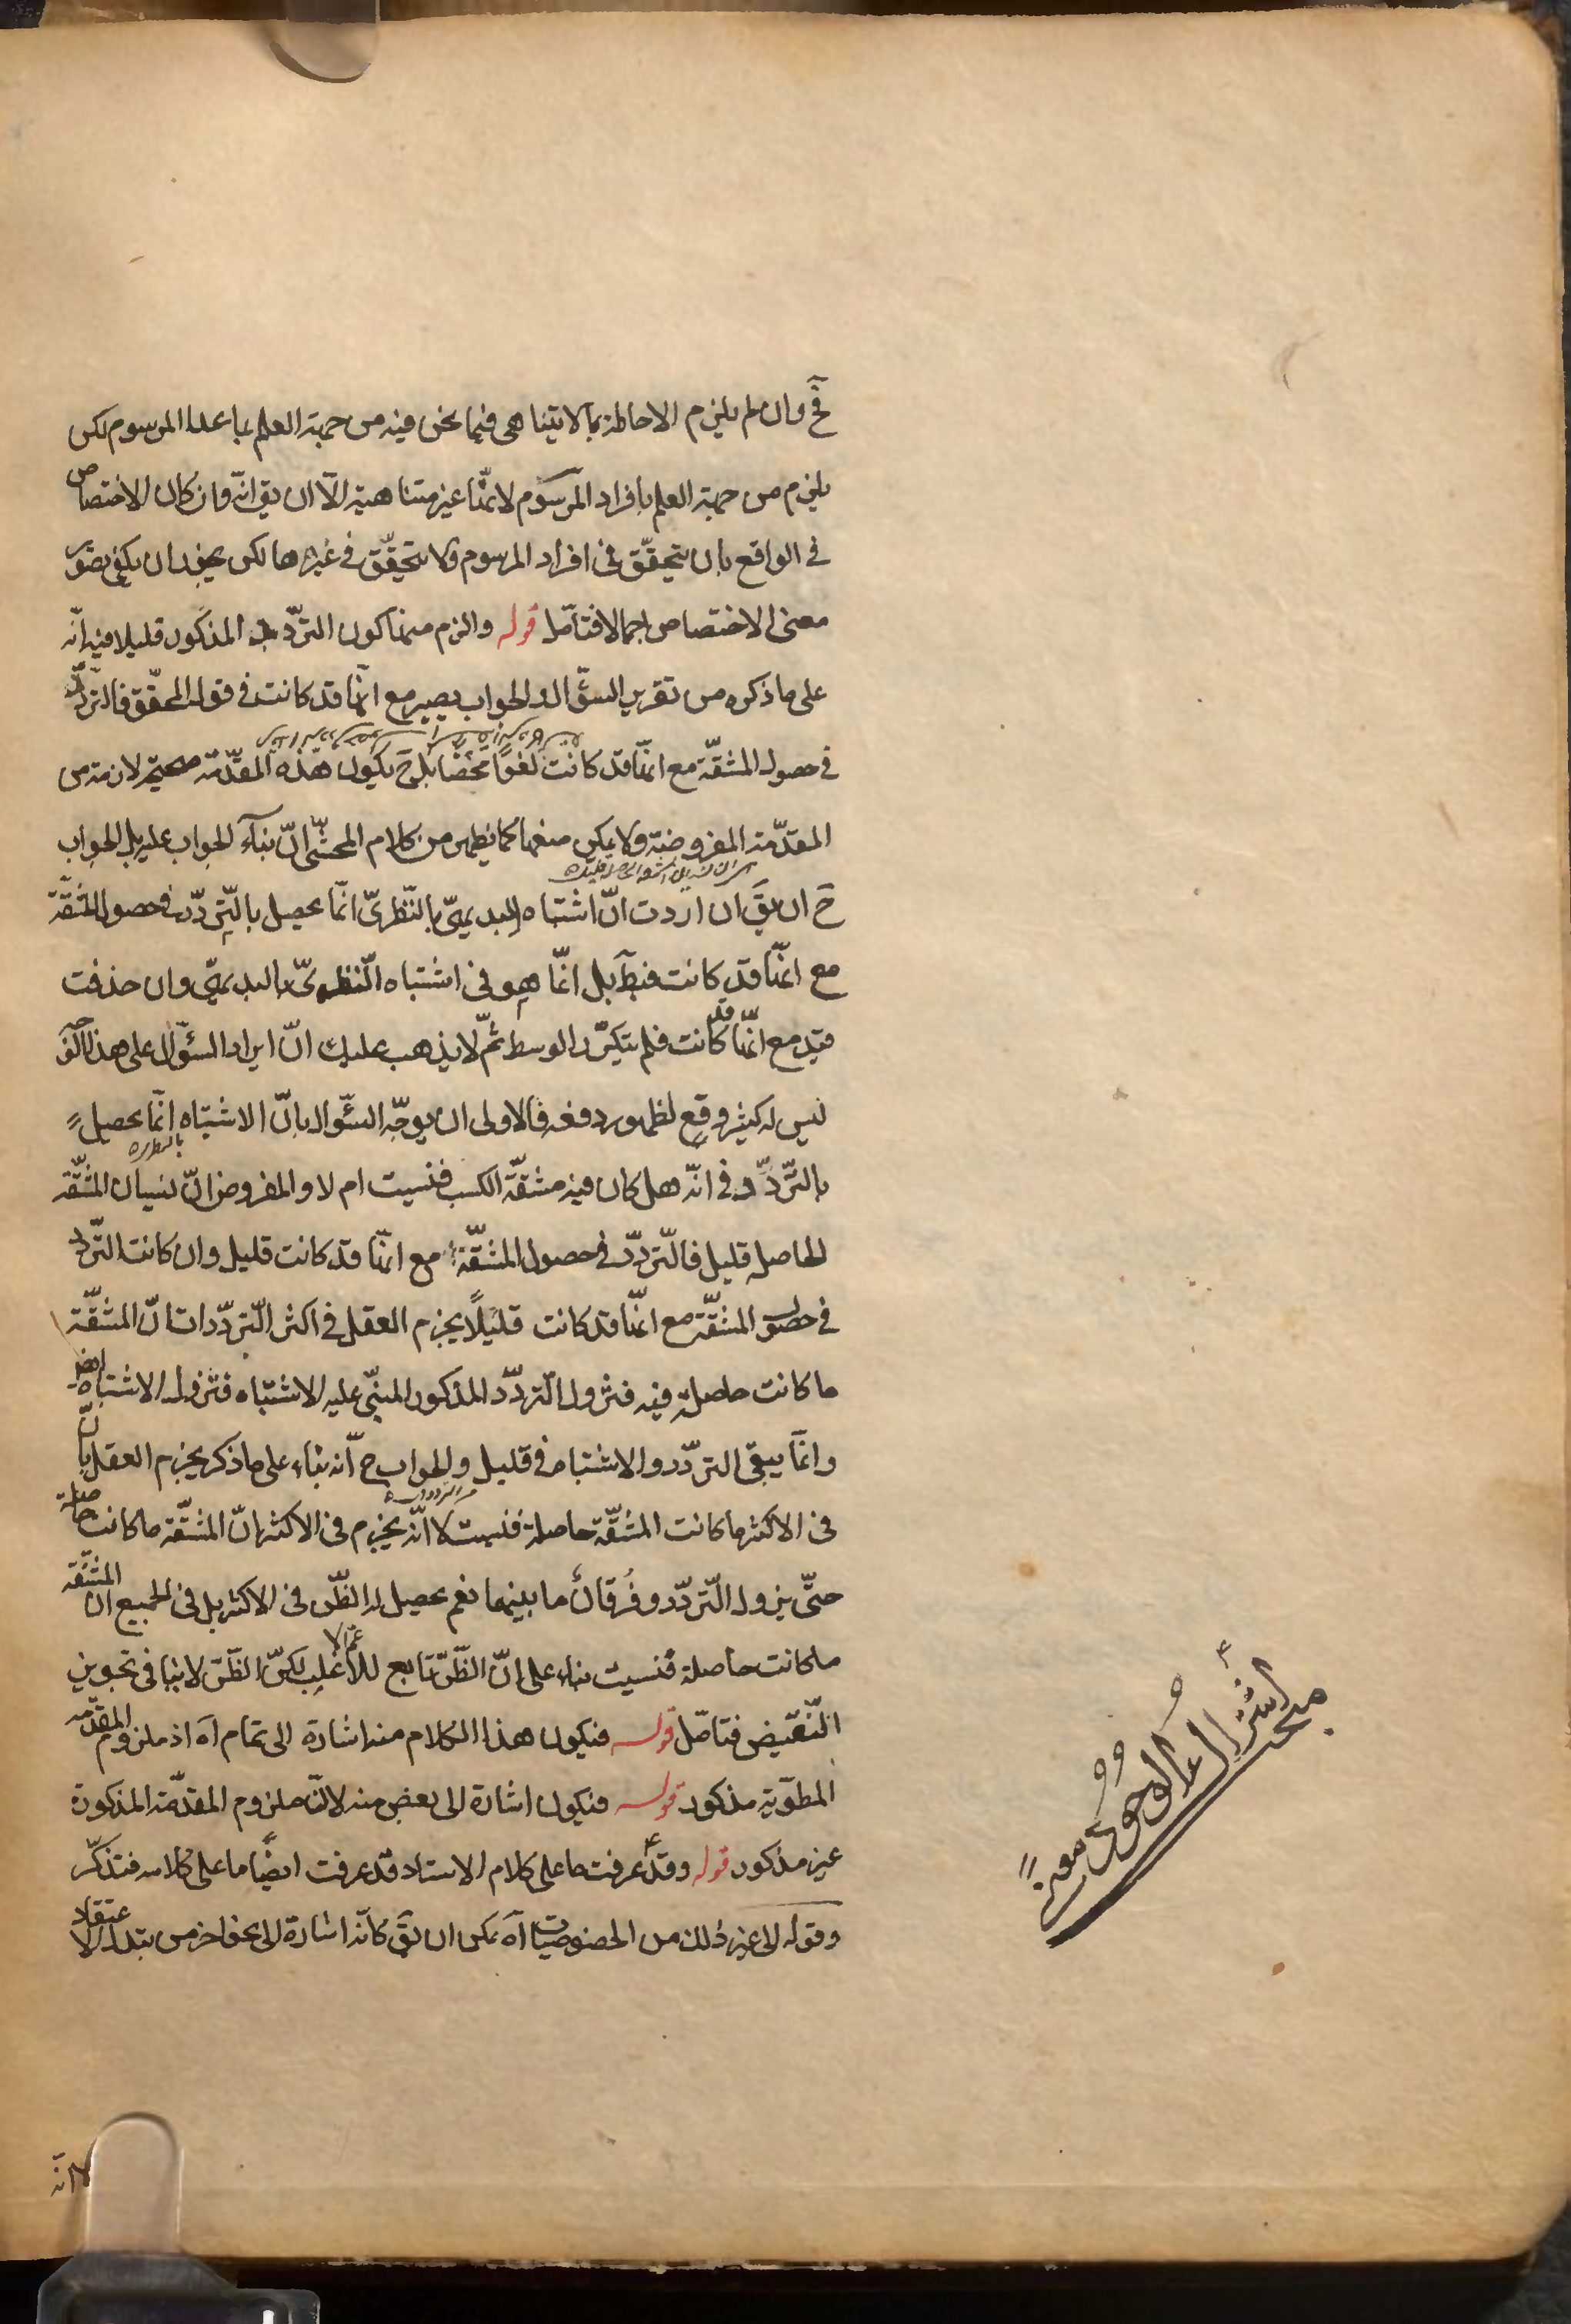 فح وان لم يلزم الاحاطة بما لا يتناهى فيما نحن فيه من جهة العلم بما عدا المرسوم لكن
يلزم من جهة العلم بافراد المرسوم لانها غير متناهية الّا ان يق انّه وان كان الاختصاص
في الواقع بان يتحقّق في افراد المرسوم ولا يتحقّق في غيرها لكن يجوز ان يكفي تصوّر
معنى الاختصاص اجمالا فتامّل قوله والزم منها كون التردّد المذكور قليلا فيه انّه
على ما ذكره من تقرير السؤال والجواب يصير مع انّها قد كانت في قول المحقّق فالتردّد
في حصول المشقّة مع انّها قد كانت لغوًا محضًا بل ح يكون هذه المقدّمة صحيحة لازمة من
المقدّمة المفروضة ولا يمكن منعها كما يظهر من كلام المحشّي انّ بناء الجواب عليه بل الجواب
ح ان يق ان اردت انّ اشتباه البديهيّ بالنّظريّ انّما يحصل بالتّردّد في حصول المشقّة
مع انّها قد كانت فبط بل انّما هو في اشتباه النّظريّ بالبديهيّ وان حذفت
قيد مع انّها قد كانت فلم يتكرّر الوسط ثمّ لا يذهب عليك انّ ايراد السؤال على هذا
ليس له كثير وقع لظهور دفعه فالاولى ان يوجّه السّؤال بانّ الاشتباه انّما يحصل
بالتّردّد في انّه هل كان فيه مشقّة الكسب فنسيت ام لا والمفروض انّ نسيان المشقّة
الحاصلة قليل فالتّردّد في حصول المشقّة مع انّها قد كانت قليل وان كانت التّردّد
في حصول المشقّة مع انّها قد كانت قليلًا يجزم العقل في اكثر التّردّدات انّ المشقّة
ما كانت حاصلة فيه فيزول التّردّد المذكور المبنيّ عليه الاشتباه فيزول الاشتباه ايضا
وانّما يبقى التردّد والاشتباه في قليل والجواب ح انّه بناء على ما ذكر يجزم العقل بانّ
في الاكثر ما كانت المشقّة حاصلة فنسيت لا انّه يجزم في الاكثر انّ المشقّة ما كانت حاصلة
حتّى يزول التّردّد وفُرقان ما بينهما نعم يحصل له الظّن في الاكثر بل في الجميع انّ المشقّة
ما كانت حاصلة فنسيت بناء على انّ الظّنّ تابع للاعمّ الاغلب لكنّ الظّنّ لا ينافي تجويز
النّقيض فتامّل قوله فيكون هذا الكلام منه اشارة الى تمام آه اذ ملزوم المقدّمة
المطويّة مذكور قوله فيكون اشارة الى بعض منه لانّ ملزوم المقدّمة المذكورة
غير مذكور قوله وقد عرفت ما على كلام الاستاد قد عرفت ايضًا ما على كلامه فتذكّر
وقوله الى غير ذلك من الخصوصيات آه يمكن ان يق كانّه اشارة الى نحو اخر من تبدل الاعتقاد